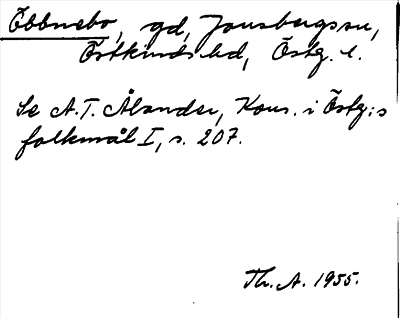 Ebbnebo, gd, Jonsbergs sn,
Östkinds hd, Östg. l.
Se A.T. Ålander, Kons. i Östg:s
folkmål I, s. 207.
Th. A. 1955.